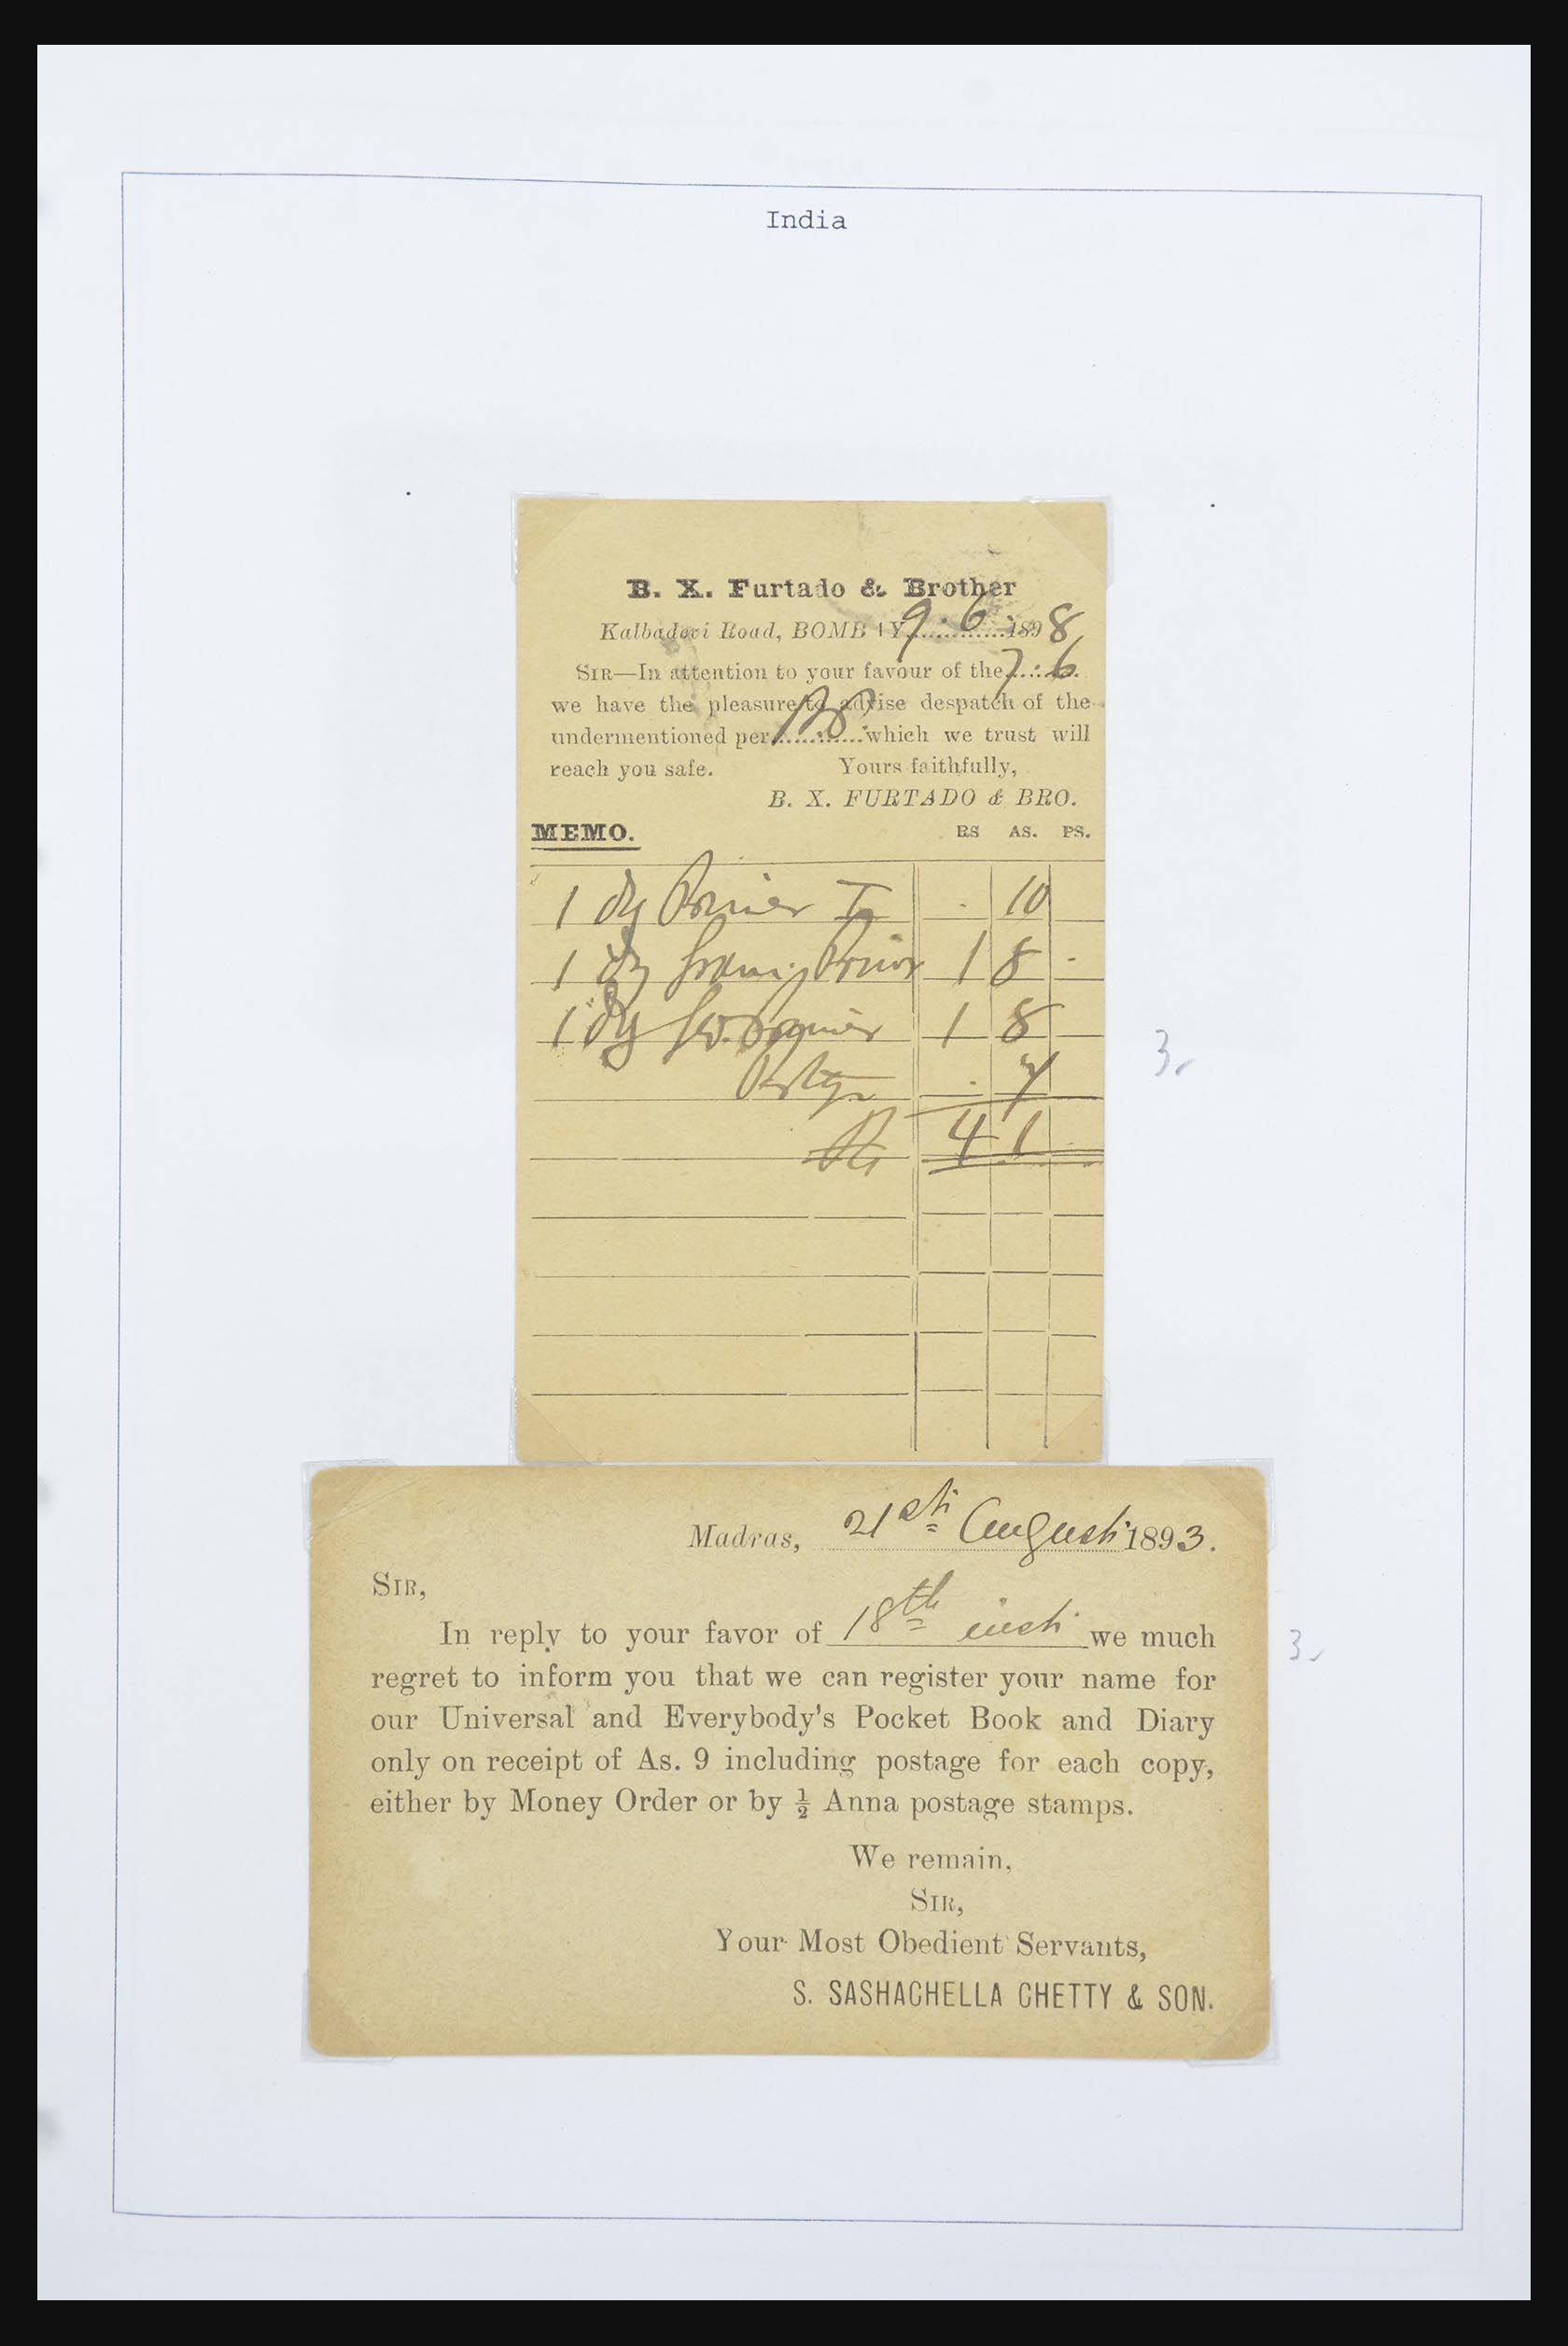 India
B. X. Furtado & Brother
Kalbadevi Road, BOMBAY 9.6.1898
SIR—In attention to your favour of the 7.6.
we have the pleasure to advise despatch of the
undermentioned per which we trust will
reach you safe. Yours faithfully,
B. X. FURTADO & BRO.
MEMO. RS AS. PS.
1 . 10
1 1 8 -
1 1 8
. 7
4 1
3.
Madras, 21st August 1893.
SIR,
In reply to your favor of 18th inst we much
regret to inform you that we can register your name for
our Universal and Everybody's Pocket Book and Diary
only on receipt of As. 9 including postage for each copy,
either by Money Order or by ½ Anna postage stamps.
We remain,
SIR,
Your Most Obedient Servants,
S. SASHACHELLA CHETTY & SON.
3.